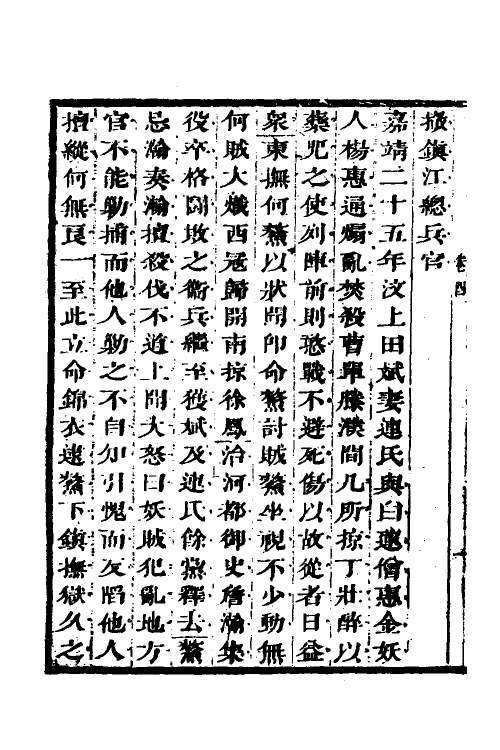 撤鎮江總兵官
嘉靖二十五年汶上田斌妻連氏與白蓮僧惠金妖
人楊惠通煽亂焚殺曹單滕濮間凡所掠丁壯醉以
藥咒之使列陣前則憨戰不避死傷以故從者日益
衆東撫何鰲以狀聞即命鰲討賊鰲坐視不少動無
何賊大熾西冦歸開南掠徐鳳治河都御史詹瀚集
役卒格鬪敗之衛兵繼至獲斌及連氏餘黨釋去鰲
忌瀚奏瀚擅殺伐不道上聞大怒曰妖賊犯亂地方
官不能勦捕而他人勦之不自知引愧而反陷他人
擅縱何無良一至此立命錦衣逮鰲下鎮撫獄久之
卷四